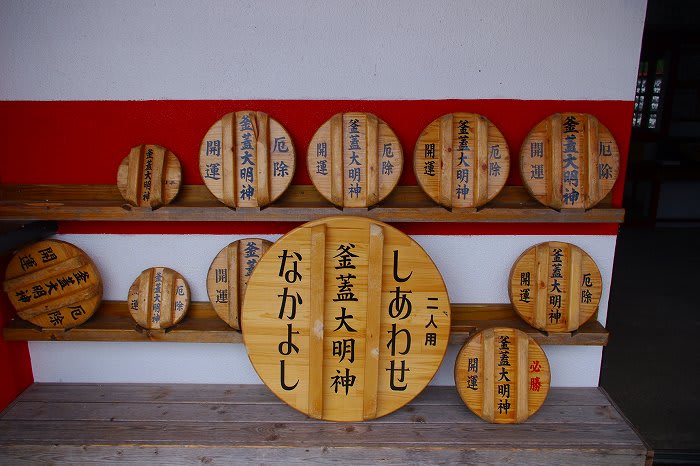 釜蓋大明神
厄除
釜蓋大明神
開運
厄除
釜蓋大明神
開運
厄除
釜蓋大明神
開運
厄除
釜蓋大明神
開運
厄除
釜蓋大明神
開運
厄除
釜蓋大明神
開運
釜蓋大明神
開運
二人用
しあわせ
釜蓋大明神
なかよし
厄除
釜蓋大明神
開運
必勝
釜蓋大明神
開運